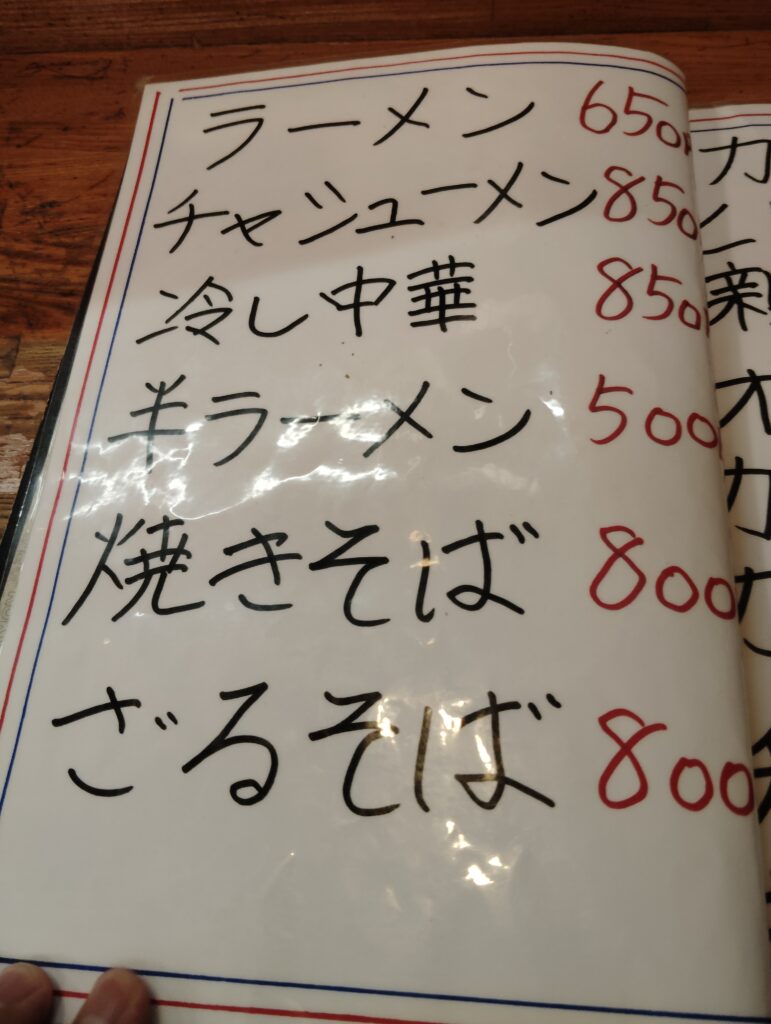 ラーメン 650円
チャジューメン 850
冷し中華 850
半ラーメン 500
焼きそば 800
ざるそば 800